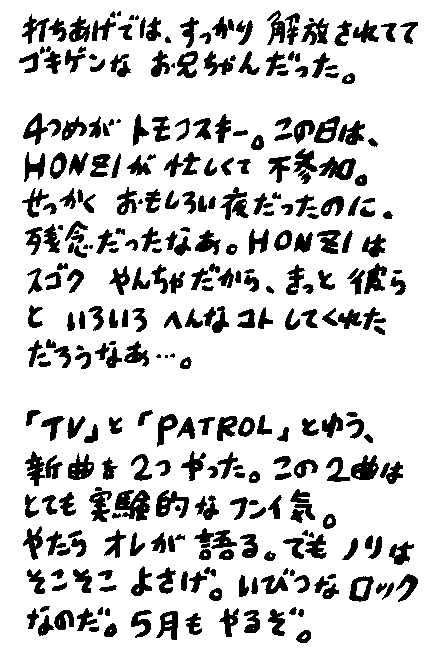 打ちあげでは、すっかり 解放されてて
ゴキゲンな お兄ちゃんだった。
4つめが トモフスキー。この日は、
HONZIが 忙しくて 不参加。
せっかく おもしろい夜だったのに。
残念だったなぁ。HONZIは
スゴク やんちゃだから、きっと 彼ら
と いろいろ へんなコト してくれた
だろうなぁ…。
「TV」と「PATROL」とゆう、
新曲を 2つ やった。この2曲は
とても 実験的な フンイ気。
やたら オレが 語る。でも ノリは
そこそこ よさげ。いびつな ロック
なのだ。5月も やるぞ。